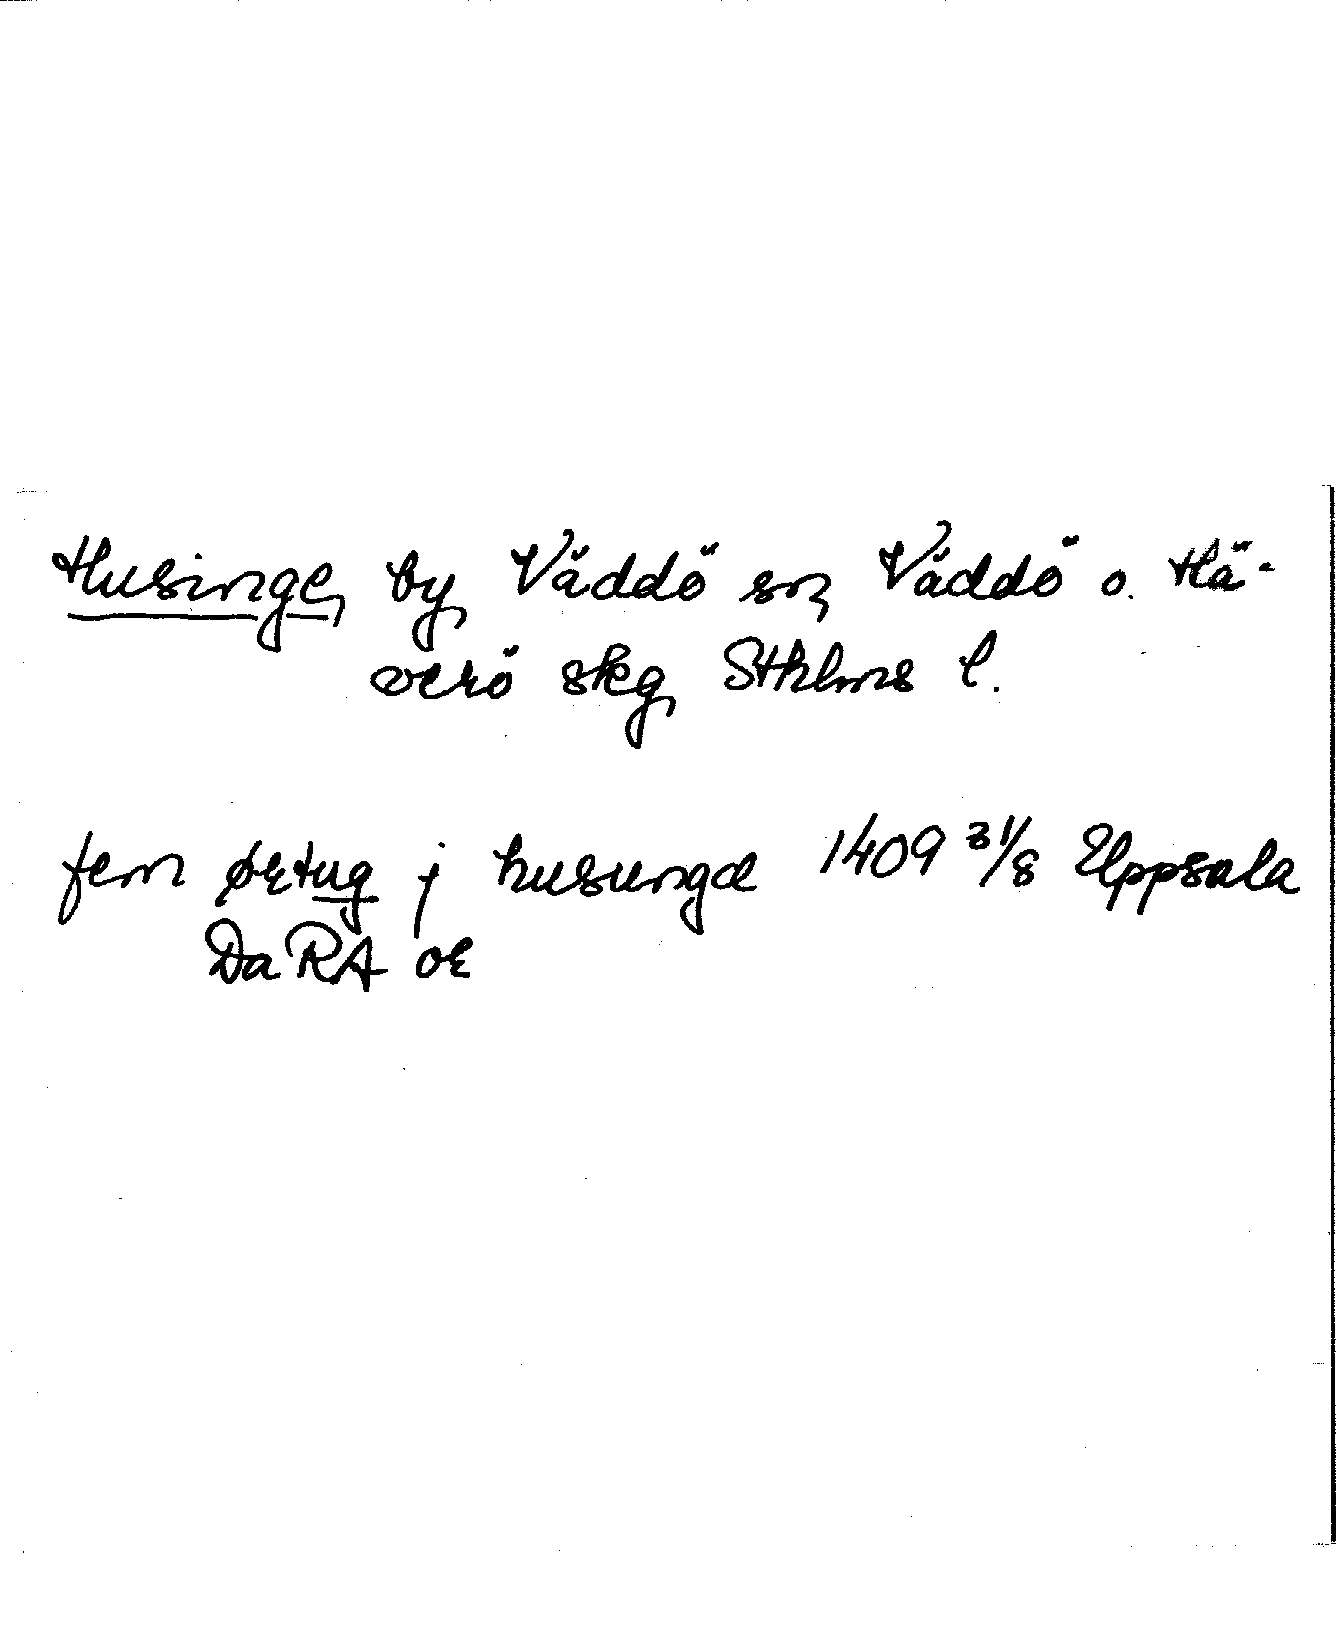 Husinge, by, Väddö sn, Väddö o. Hä-
verö skg, Sthlms l.
fem øætug j husungæ 1409 31/8 Uppsala
Da RA or